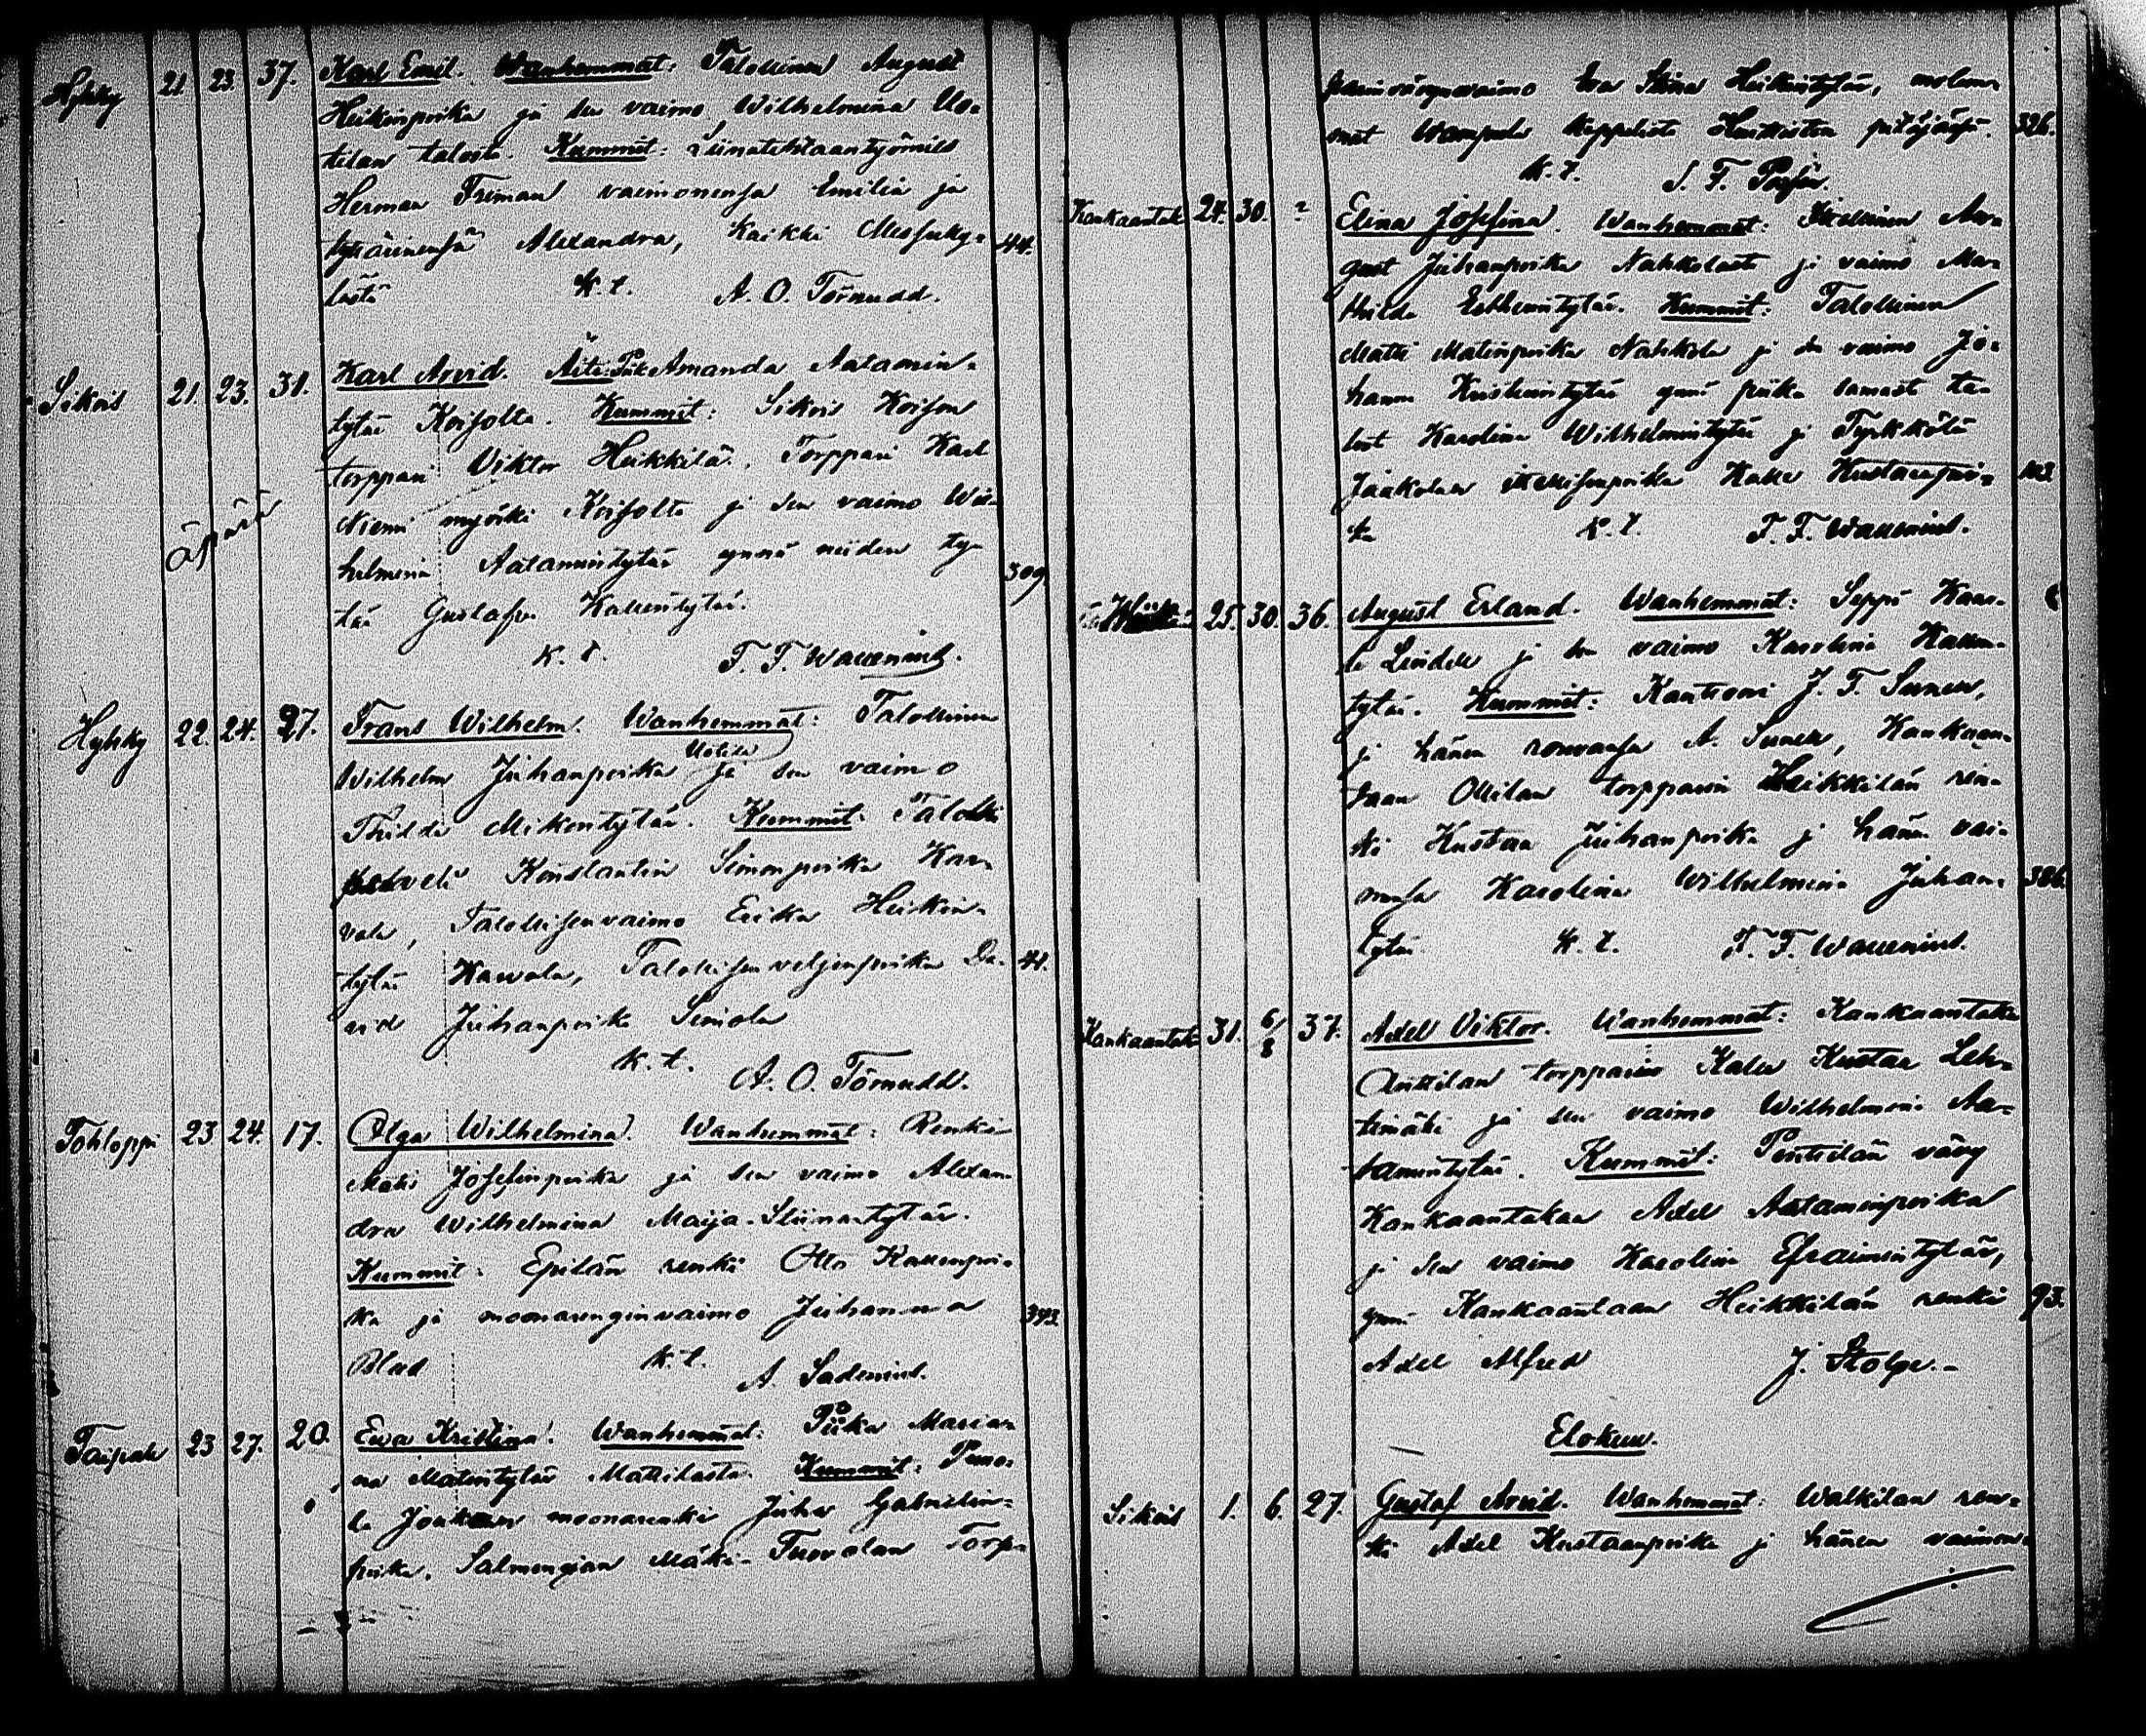 Hyhky 21 23. 37. Karl Emil. Wanhemmat: Talollinen August
Heikinpoika ja sen vaimo Wilhelmina Uo-
tilan talosta. Kummit: Liinatehtaantyömies
Herman Friman vaimonensa Emilia ja
tyttärinensä Alexandra, kaikki Messuky- 44.
lästä k. t. A. O. Törnudd.
Sikois 21. 23. 31. Karl Arvid. Äiti: Amanda Aatamin-
tytär Koisolta. Kummit: Sikois Koison
torppari Viktor Heikkilä, Torppari Karl
Niemi myöski Koisolta ja sen vaimo Wil-
äpärä
helmina Aatamintytär ynnä niiden ty- 309
tär Gustafva Kallentytär.
k. t. F. F. Wallenius.
Hyhky 22. 24. 27. Frans Wilhelm. Wanhemmat: Talollinen
Uotila
Wilhelm Juhanpoika ja sen vaimo
Thilda Mikontytär. Kummit: Talollis
Konstantin Simonpoika Kar-
vala, Talollisenvaimo Erika Heikin-
tytär Karvala, Talollisen veljenpoika Da- 41.
vid Juhanpoika Simola
k. t. A. O. Törnudd.
Tohloppi 23 24. 17. Olga Wilhelmina. Wanhemmat: Renki
Matti Josefinpoika ja sen vaimo Alexan-
dra Wilhelmina Maija-Stiinantytär.
Kummit: Epilän renki Otto Kallenpoi-
ka ja moonarenginvaimo Juhanna 343
Blad k. t. A. Sadenius.
Taipale 23 27. 20. Ewa Kristina. Wanhemmat: Piika Maria-
na Matintytär Mattilasta. Kummit:
moonarenki Juha Gabrielin-
poika, Mäki- Torp-
Ewa Stina Heikintytär, molem-
mat Wampula kappelista Huittisten pitäjästä. 326.
k. t.
Kankaantaka 24. 30. ? Elina Josefina. Wanhemmat: Itsellinen Au-
gust Juhanpoika Nahkolasta ja vaimo Ma-
thilda Kummit: Talollinen
Matti Matinpoika Nahkola ja sen vaimo Jo-
hanna ynnä piika samasta ta-
losta Karolina Wilhelmintytär ja Tyrkkölä
Jaakolan itsellisenpoika Kalle Kustaanpoi-
ka k. t. F. F. Wallenius.
25. 30. 36. August Erland. Wanhemmat: Seppä Kaar-
le Lindell ja sen vaimo Karolina Kallen-
tytär. Kummit: Kanttori J. F. Sunell,
ja hänen rouvansa A. Sunell, Kankaan-
taan Ollilan torpparin Heikkilän ren-
ki Kustaa Juhanpoika ja hänen vai-
monsa Karolina Wilhelmina Juhan- 386.
tytär. k. t. F. F. Wallenius.
Kankaantak 31. 6/8 37. Axel Viktor. Wanhemmat: Kankaantaka
Anttilan torppari Kalle Kustaa Leh-
timäki ja sen vaimo Wilhelmina Aa-
tamintytär. Kummit: Penttilän vävy
Kankaantakaa Axel Aataminpoika
ja sen vaimo Karolina Efraimintytär,
ynnä Kankaantaan Heikkilän renki 93.
Axel Alfred J. Stolpe.
Elokuu.
Sikois 1. 6. 27. Gustaf Arvid. Wanhemmat: Walkilan ren-
ki Axel Kustaanpoika ja hänen vaimon-